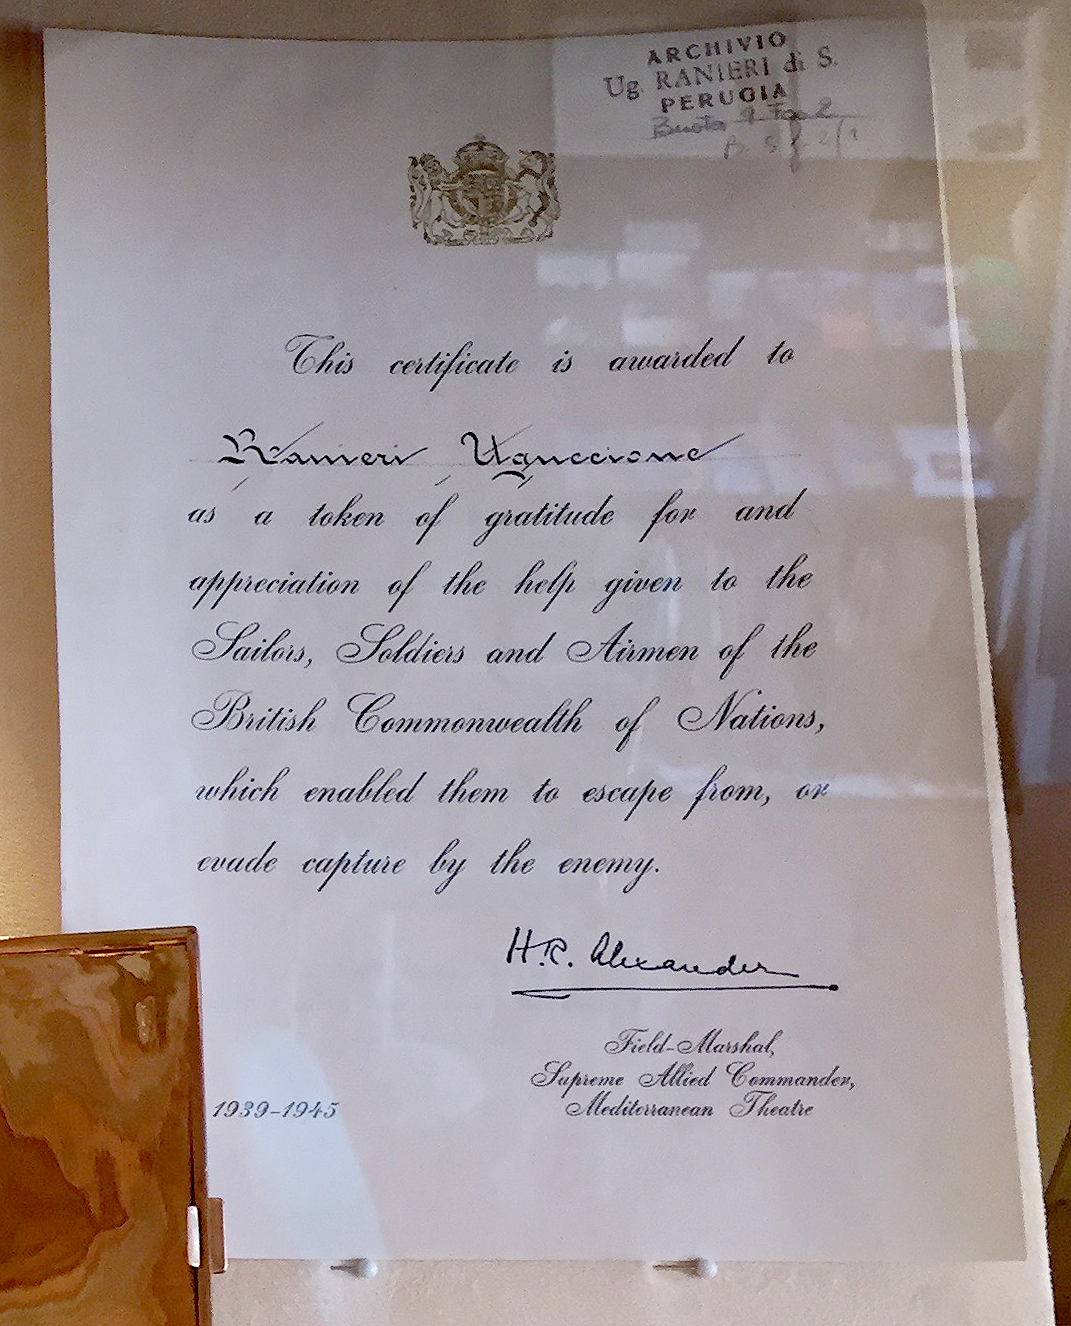 ARCHIVIO
Ug. RANIERI di S.
PERUGIA
Busta 9
This certificate is awarded to
Ranieri Uguccione
as a token of gratitude for and
appreciation of the help given to the
Sailors, Soldiers and Airmen of the
British Commonwealth of Nations,
which enabled them to escape from, or
evade capture by the enemy.
H.R. Alexander
Field-Marshal,
Supreme Allied Commander,
Mediterranean Theatre
1939-1945